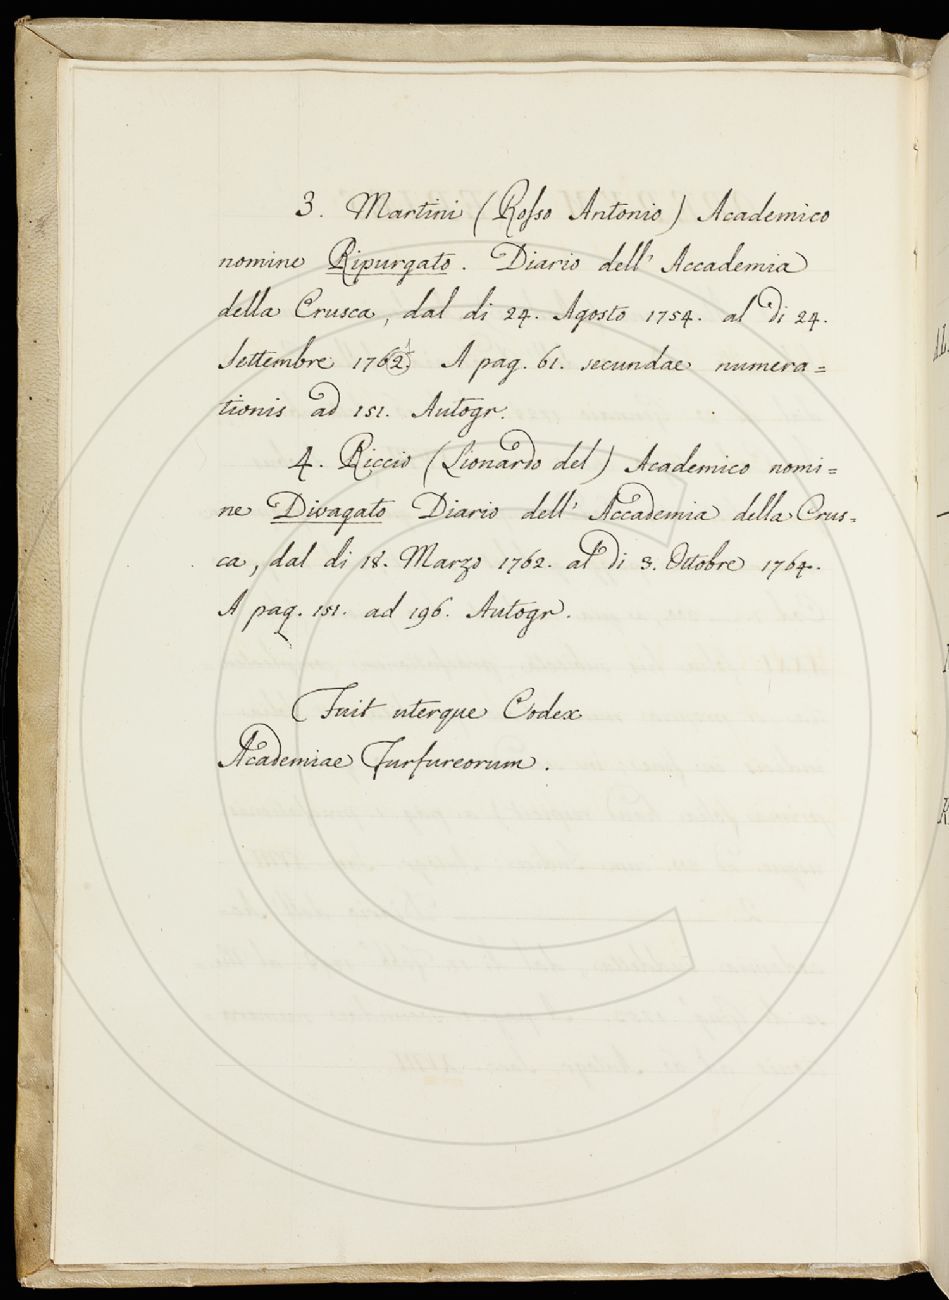 3. Martini (Rosso Antonio) Academico
nomine Ripurgato. Diario dell' Accademia
della Crusca, dal di 24. Agosto 1754. al di 24.
Settembre 1762. A pag. 61. secundae numera=
tionis ad 151. Autogr.
4. Riccio (Lionardo del) Academico nomi=
ne Divagato Diario dell' Accademia della Crus=
ca, dal di 18. Marzo 1762. al di 3. Ottobre 1764.
A pag. 151. ad 196. Autogr.
Fuit uterque Codex
Academiae Furfureorum.